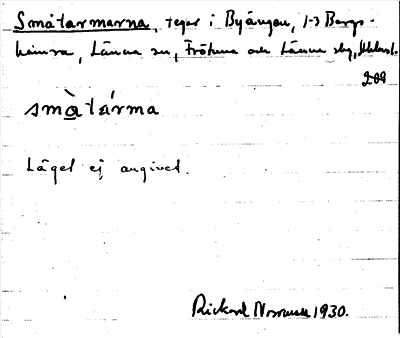 Småtarmarna, tegar i Byängen, 1-3 Bergs-
hamra, Länna sn, Frötuna och Länna skg,
209
småtárma
Läget ej angivet.
Rickard 1930.